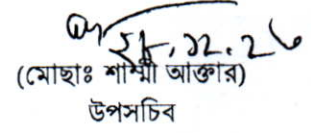 ২৮.১২.২৬
(মোছাঃ শাম্মী আক্তার)
উপসচিব